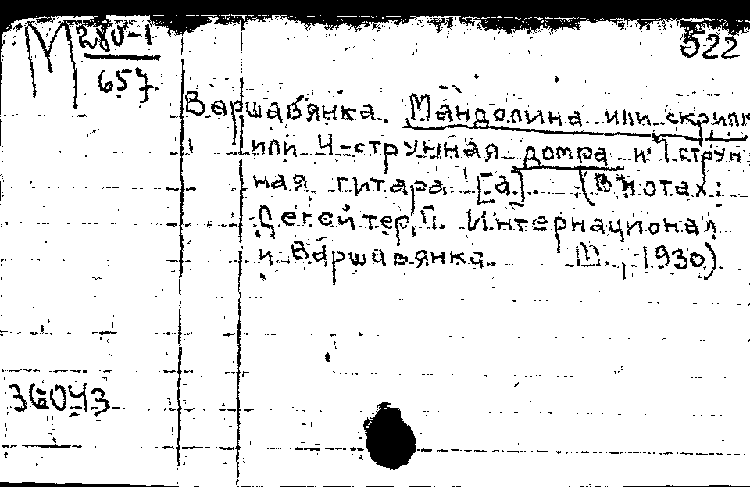 М 280-1
657
522
Варшавянка. Мандолина или скрипк
или 4-струнная домра и 7 струн
ная гитара [а]. (В нотах:
Дегейтер, П. Интернационал
и Варшавянка. М., 1930)
36043